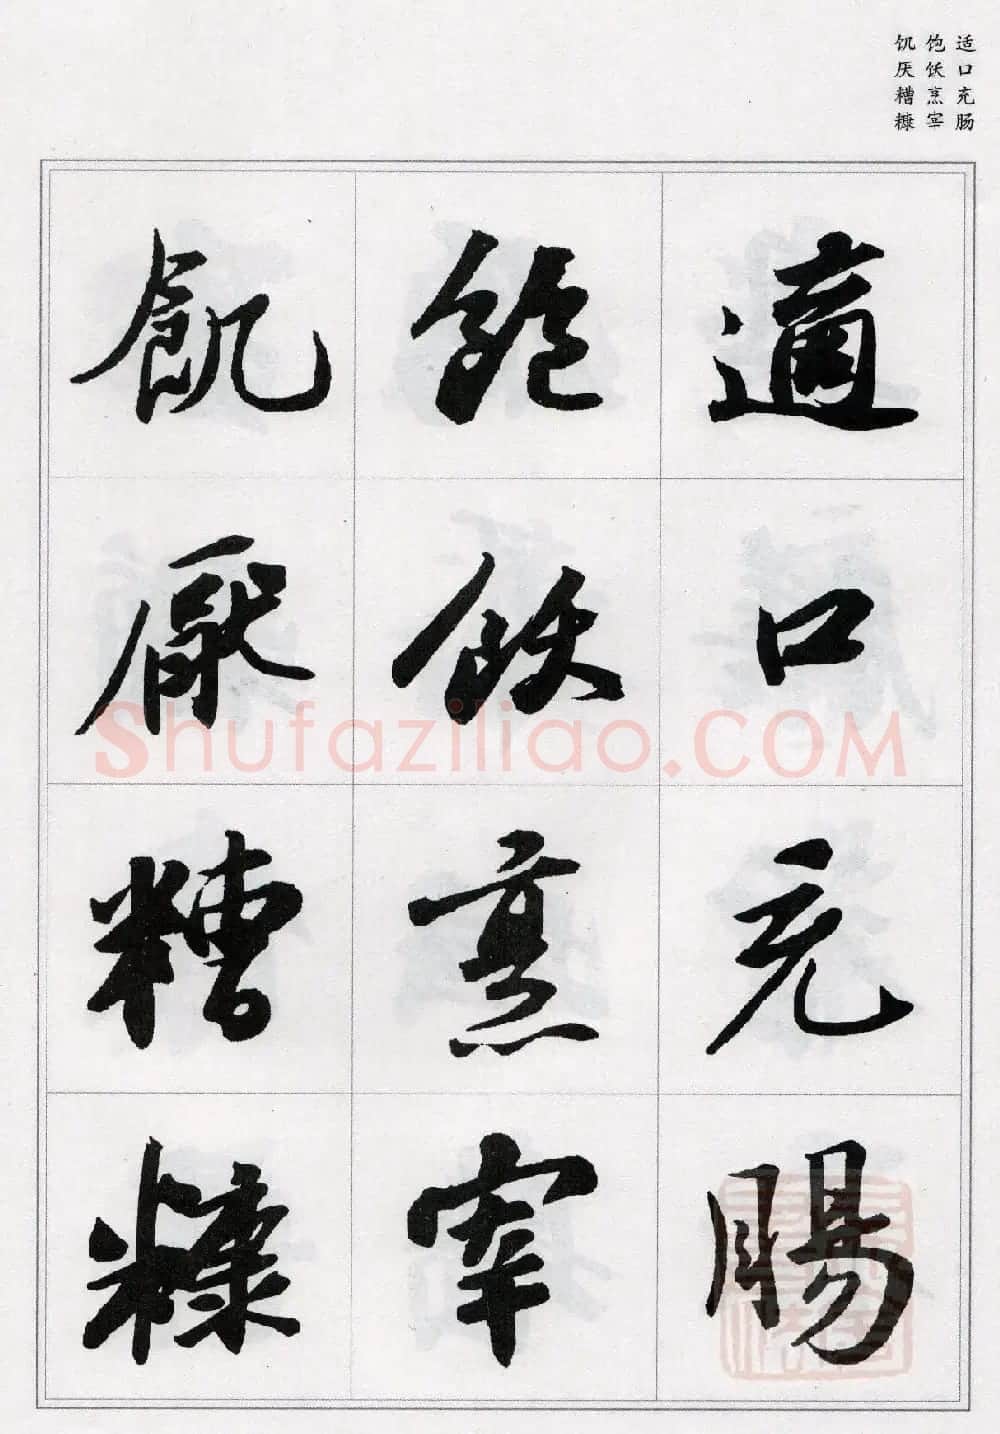 适口充肠
饱饫烹宰
饥厌糟糠
適口充腸
飽飫烹宰
飢厭糟糠
Shufaziliao.COM